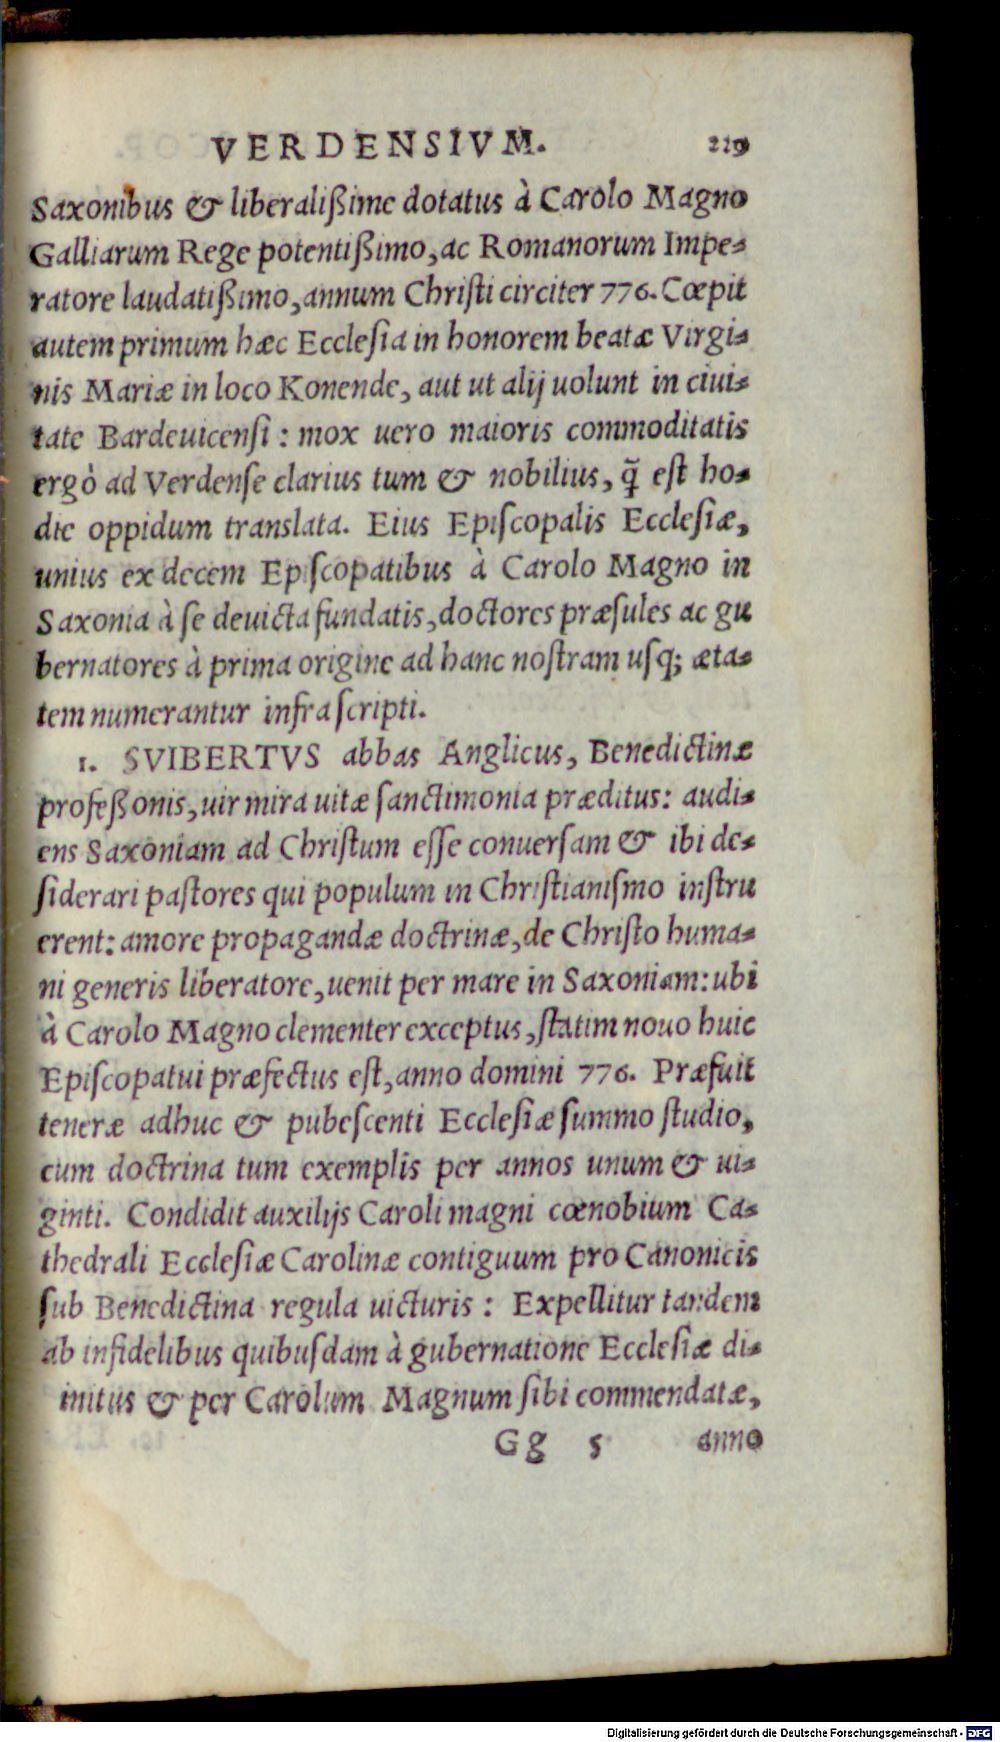 VERDENSIVM. 229
Saxonibus & liberalißime dotatus à Carolo Magno
Galliarum Rege potentißimo, ac Romanorum Impe-
ratore laudatißimo, annum Chriſti circiter 776. Cœpit
autem primum hæc Eccleſia in honorem beatæ Virgi-
nis Mariæ in loco Konende, aut ut alij uolunt in ciui-
tate Bardeuicenſi: mox uero maioris commoditatis
ergò ad Verdenſe clarius tum & nobilius, q̃ eſt ho-
die oppidum translata. Eius Epiſcopalis Eccleſiæ,
unius ex decem Epiſcopatibus à Carolo Magno in
Saxonia à ſe deuicta fundatis, doctores præſules ac gu
bernatores à prima origine ad hanc noſtram uſq; æta-
tem numerantur infra ſcripti.
1. SVIBERTVS abbas Anglicus, Benedictinæ
profeßonis, uir mira uitæ ſanctimonia præditus: audi-
ens Saxoniam ad Chriſtum eſſe conuerſam & ibi de-
ſiderari paſtores qui populum in Chriſtianiſmo inſtru
erent: amore propagandæ doctrinæ, de Chriſto huma-
ni generis liberatore, uenit per mare in Saxoniam: ubi
à Carolo Magno clementer exceptus, ſtatim nouo huic
Epiſcopatui præfectus eſt, anno domini 776. Præfuit
teneræ adhuc & pubeſcenti Eccleſiæ ſummo ſtudio,
cum doctrina tum exemplis per annos unum & ui-
ginti. Condidit auxilijs Caroli magni cœnobium Ca-
thedrali Eccleſiæ Carolinæ contiguum pro Canonicis
ſub Benedictina regula uicturis: Expellitur tandem
ab infidelibus quibuſdam à gubernatione Eccleſiæ di-
initus & per Carolum Magnum ſibi commendatæ,
Gg 5 anno
Digitalisierung gefördert durch die Deutsche Forschungsgemeinschaft - DFG